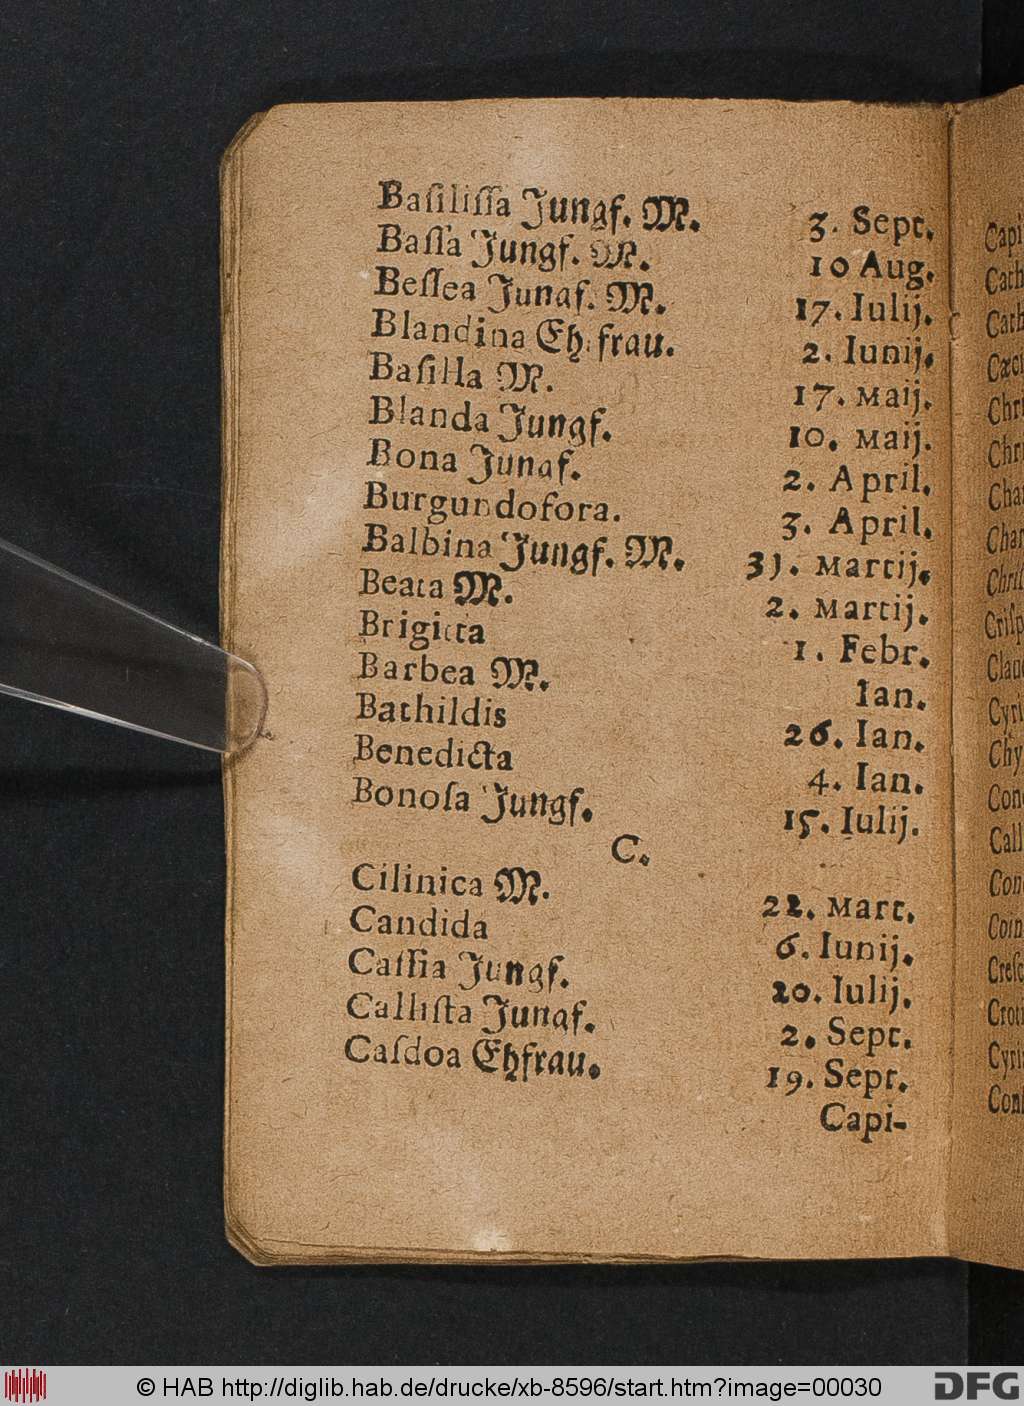 Baſiliſſa Jungf. M. 3. Sept.
Baſſa Jungf. M. 10 Aug.
Beſſea Jungf. M. 17. Iulij.
Blandina Eh. frau. 2. Iunij.
Baſilla M. 17. Maij.
Blanda Jungf. 10. Maij.
Bona Jungf. 2. April.
Burgundofora. 3. April.
Balbina Jungf. M. 31. Martij.
Beata M. 2. Martij.
Brigitta 1. Febr.
Barbea M. Ian.
Bathildis 26. Ian.
Benedicta 4. Ian.
Bonoſa Jungf. 15. Iulij.
C.
Cilinica M. 22. Mart.
Candida 6. Iunij.
Caſſia Jungf. 20. Iulij.
Calliſta Jungf. 2. Sept.
Caſdoa Ehfrau. 19. Sept.
Capi-
Capi
Cath
Cath
Cæci
Chri
Chri
Cha
Char
Chriſ
Criſp
Clau
Cyri
Chy
Con
Call
Con
Coin
Creſc
Crot
Cyri
Conſ
© HAB http://diglib.hab.de/drucke/xb-8596/start.htm?image=00030
DFG